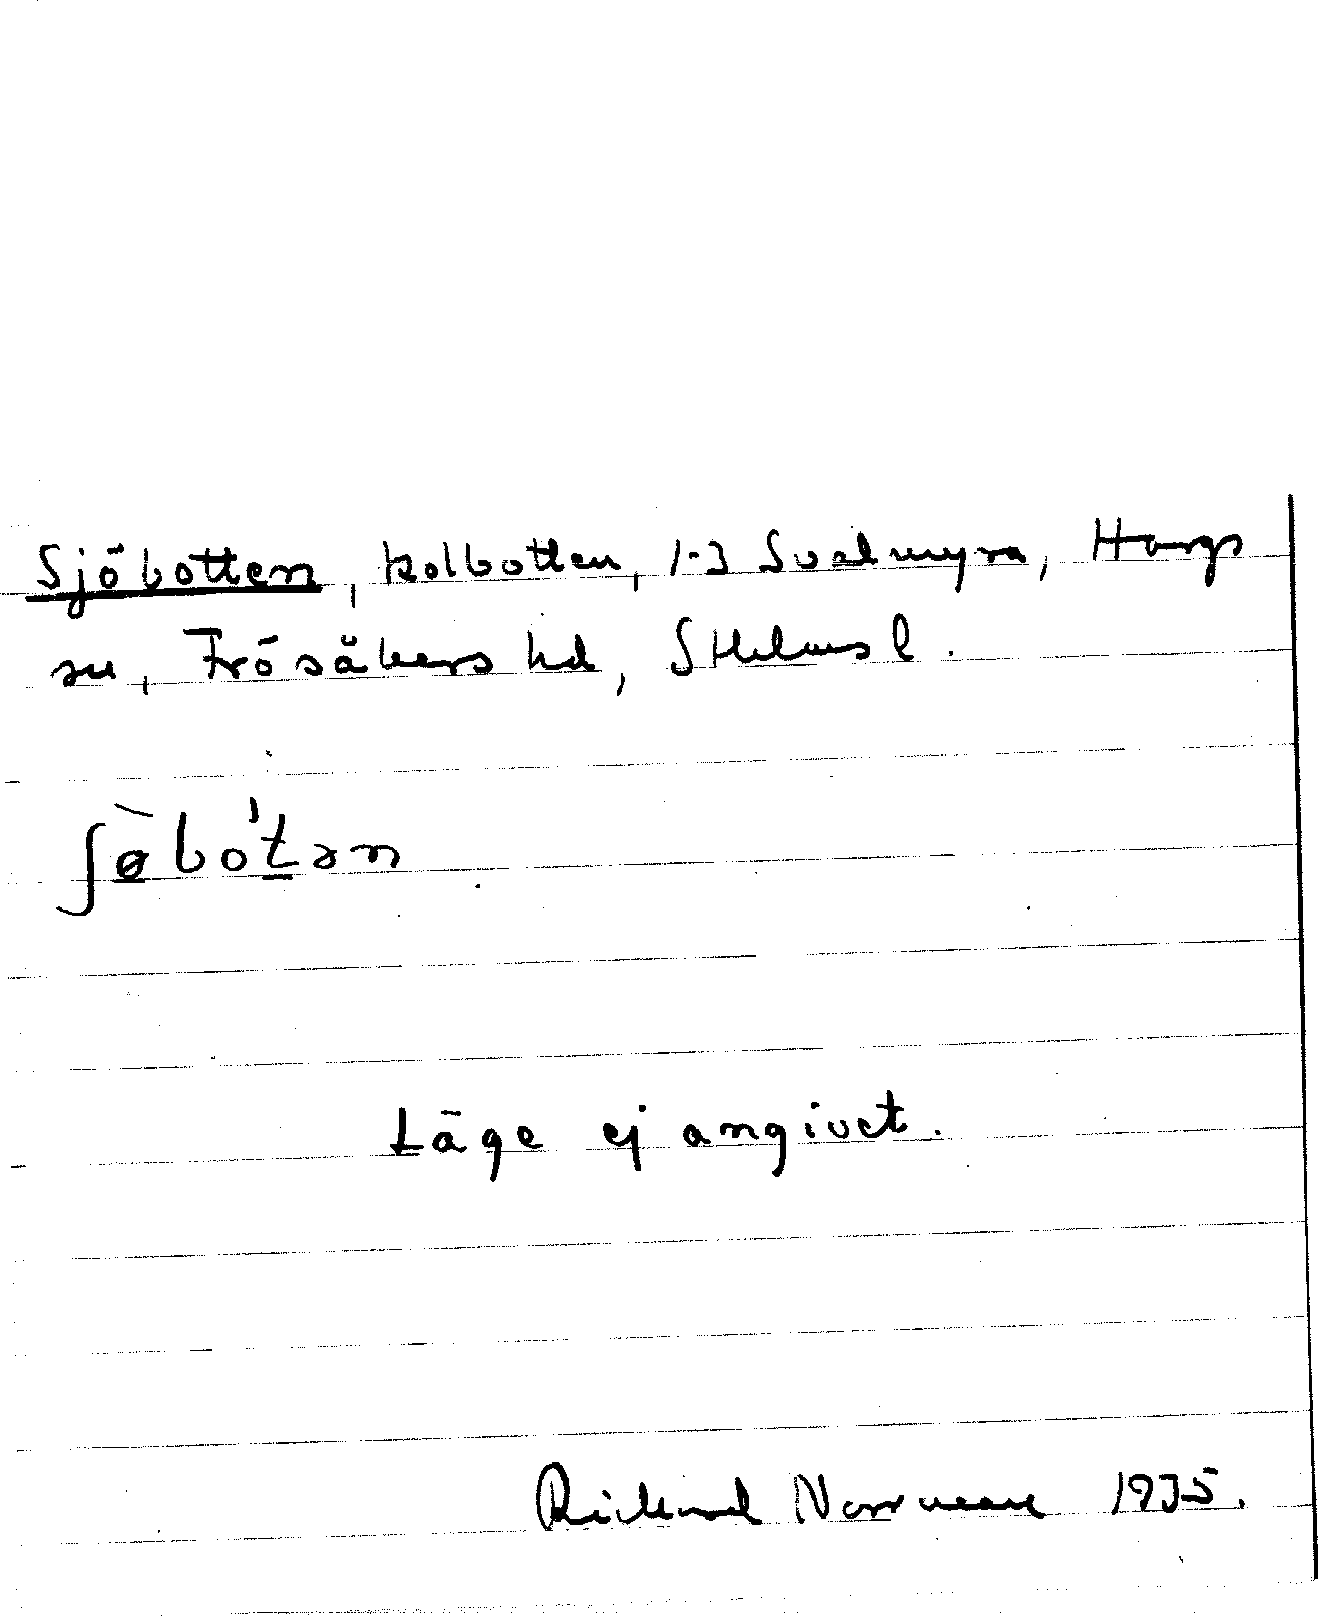 Sjöbotten, kolbotten, 1-3 Svalmyra, Hargs
sn, Frösåkers hd, Sthlms l.
ʃø̀bo'tən
Läge ej angivet.
Rickard Norrman 1935.